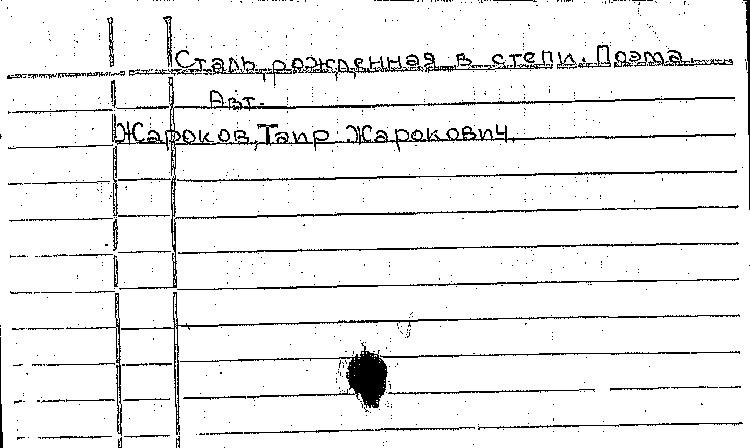 Сталь, рожденная в степи. Поэма.
Авт.
Жароков, Таир Жарокович.